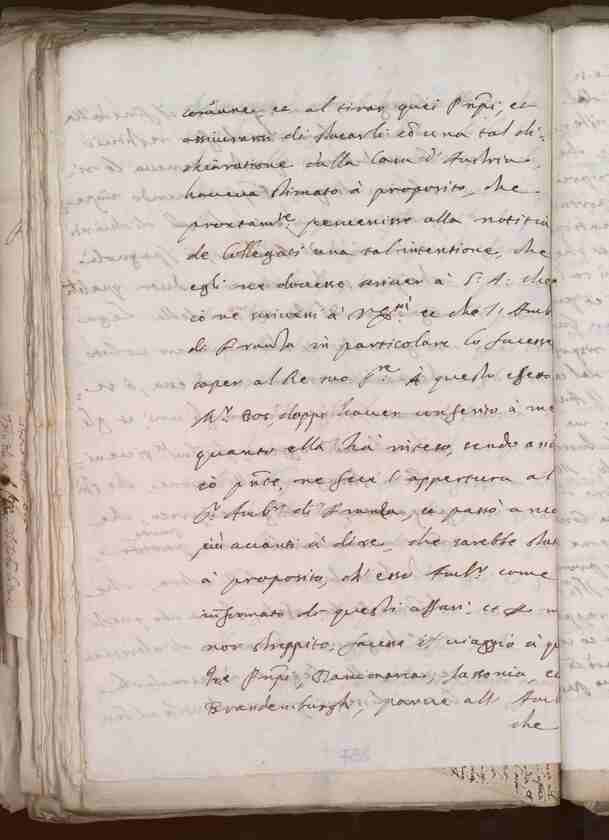 comune, et al tirar quei Prñpi, et
assicurarsi di staccarli cõ una tal di-
chiaratione dalla Casa d'Austria,
haveva stimato à proposito, che
prontam.te pervenisse alla notitia
de Collegati una tal intentione, che
egli ne dovesse scriver à S. A. che
cõ ne et che S. Amb
di Francia in particolare lo facesse
saper al Re suo S.re À questo effetto
M.r Bos, doppo haver conferito à me
quanto ella hà inteso, sendo an
cõ ne feci l'appertura al
S.r Amb.r di Francia, et passò anco
più avanti à dire, che sarebbe stat
à proposito, ch'esso Amb.r come
informato di questi affari, et
nor streppito, facesse il viaggio à
Prñpi, Sassonia, et
Brandemburgh, parve all' Amb
che